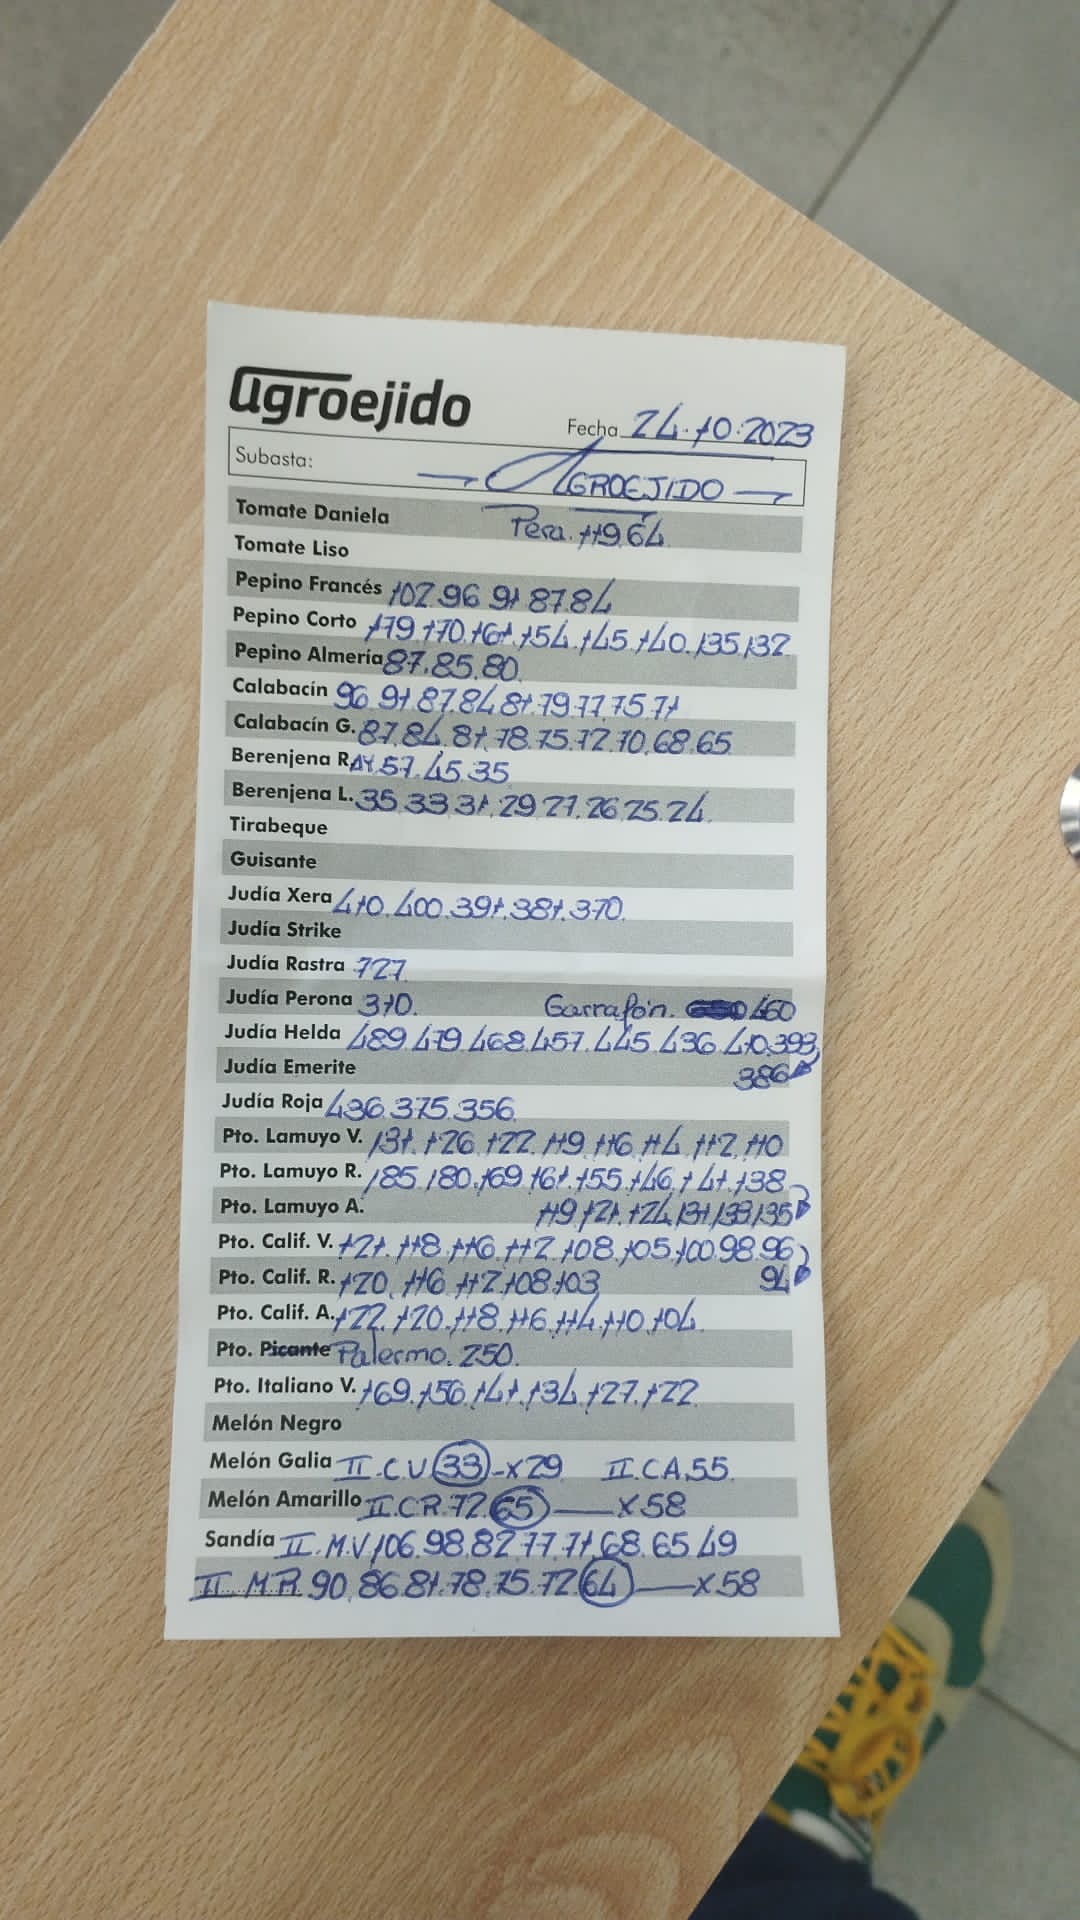 agroejido
Fecha 24.10.2023
Subasta: AGROEJIDO
Tomate Daniela Pera. 119.64
Tomate Liso
Pepino Francés 102.96.91.87.84
Pepino Corto 179.170.161.154.145.140.135.132
Pepino Almería 87.85.80.
Calabacín 96.91.87.84.81.79.77.75.71
Calabacín G. 87.84.81.78.75.72.70.68.65
Berenjena R. 57.45.35
Berenjena L. 35.33.31.29.27.26.25.24
Tirabeque
Guisante
Judía Xera 410.400.391.381.370.
Judía Strike
Judía Rastra 727.
Judía Perona 370. Garrafón. 460
Judía Helda 489.479.468.457.445.436.410.393
Judía Emerite 386
Judía Roja 436.375.356.
Pto. Lamuyo V. 131.126.122.119.116.114.112.110
Pto. Lamuyo R. 185.180.169.161.155.146.141.138
Pto. Lamuyo A. 119.121.124.131.133.135
Pto. Calif. V. 121.118.116.112.108.105.100.98.96
Pto. Calif. R. 120.116.112.108.103 94
Pto. Calif. A. 122.120.118.116.114.110.104.
Pto. Picante Palermo. 250.
Pto. Italiano V. 169.156.141.134.127.122
Melón Negro
Melón Galia II.C.V 33-x29 II.CA.55.
Melón Amarillo II.CR.72.65—x58
Sandía II.M.V 106.98.82.77.71.68.65.49
II.MR.90.86.81.78.75.72.64—x58